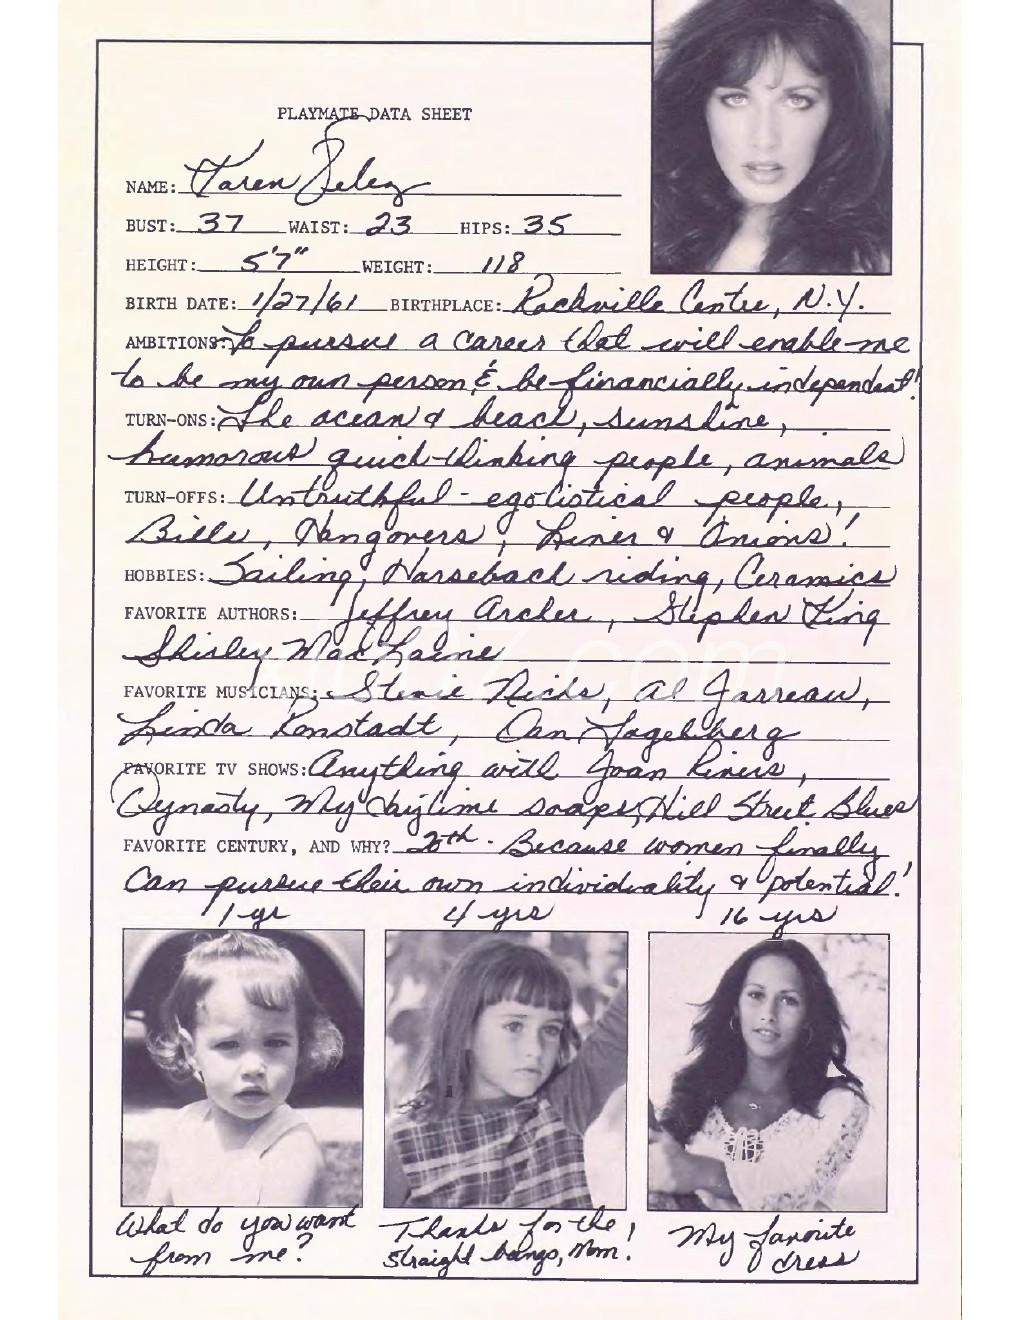 PLAYMATE DATA SHEET
NAME: Karen Velez
BUST: 37 WAIST: 23 HIPS: 35
HEIGHT: 5'7" WEIGHT: 118
BIRTH DATE: 1/27/61 BIRTHPLACE: Rockville Centre, N.Y.
AMBITIONS: To pursue a career that will enable me
to be my own person & be financially independent!
TURN-ONS: The ocean & beach, sunshine,
humorous quick-thinking people, animals
TURN-OFFS: Untruthful - egotistical people,
Bills, Hangovers, Liver & Onions!
HOBBIES: Sailing, Horseback riding, Ceramics
FAVORITE AUTHORS: Jeffrey Archer, Stephen King
Shirley MacLaine
FAVORITE MUSICIANS: Stevie Nicks, Al Jarreau,
Linda Ronstadt, Dan Fogelberg
FAVORITE TV SHOWS: Anything with Joan Rivers,
Dynasty, My daytime soaps, Hill Street Blues
FAVORITE CENTURY, AND WHY? 20th - Because women finally
can pursue their own individuality & potential!
1 yr 4 yrs 16 yrs
What do you want
from me?
Thanks for the
straight bangs, Mom!
My favorite
dress